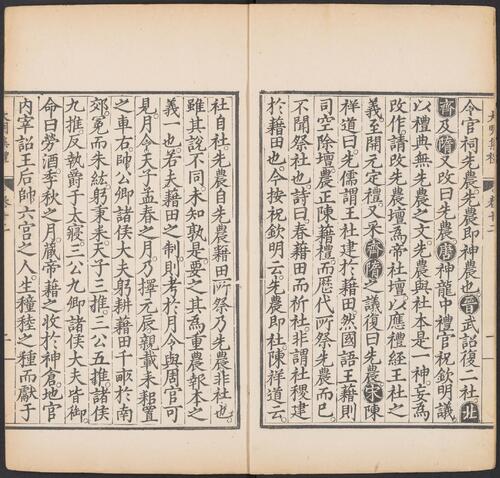 令官祠先農先農即神農也晉武詔復二社北
齊及隋又改曰先農唐神龍中禮官祝欽明議
以禮典無先農之文先農與社本是一神妄爲
改作請改先農壇爲帝社壇以應禮經王社之
義至開元定禮又采齊隋之議復曰先農宋陳
祥道曰先儒謂王社建於藉田然國語王藉則
司空除壇農正陳藉禮而歷代所祭先農而已
不聞祭社也詩曰春藉田而祈社非謂社稷建
於藉田也今按祝欽明云先農即社陳祥道云
社自社先農自先農藉田所祭乃先農非社也
雖其說不同未知孰是要之其爲重農報本之
義一也若夫藉田之制則考於月令與周官可
見月令天子孟春之月乃擇元辰親載耒耜置
之車右帥公卿諸侯大夫躬耕藉田千畝於南
郊冕而朱紘躬秉耒天子三推三公五推諸侯
九推反執爵于太寢三公九卿諸侯大夫皆御
命曰勞酒季秋之月藏帝藉之收於神倉周官
內宰詔王后帥六宮之人生穜稑之種而獻于
大明集禮